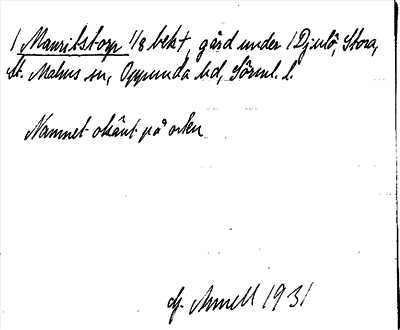 1 Mauritstorp 1/8 bekt, gård under 1 Djulö, Stora,
St. Malms sn, Oppunda hd, Sörml. l.
Namnet okänt på orten
Arnell 1931